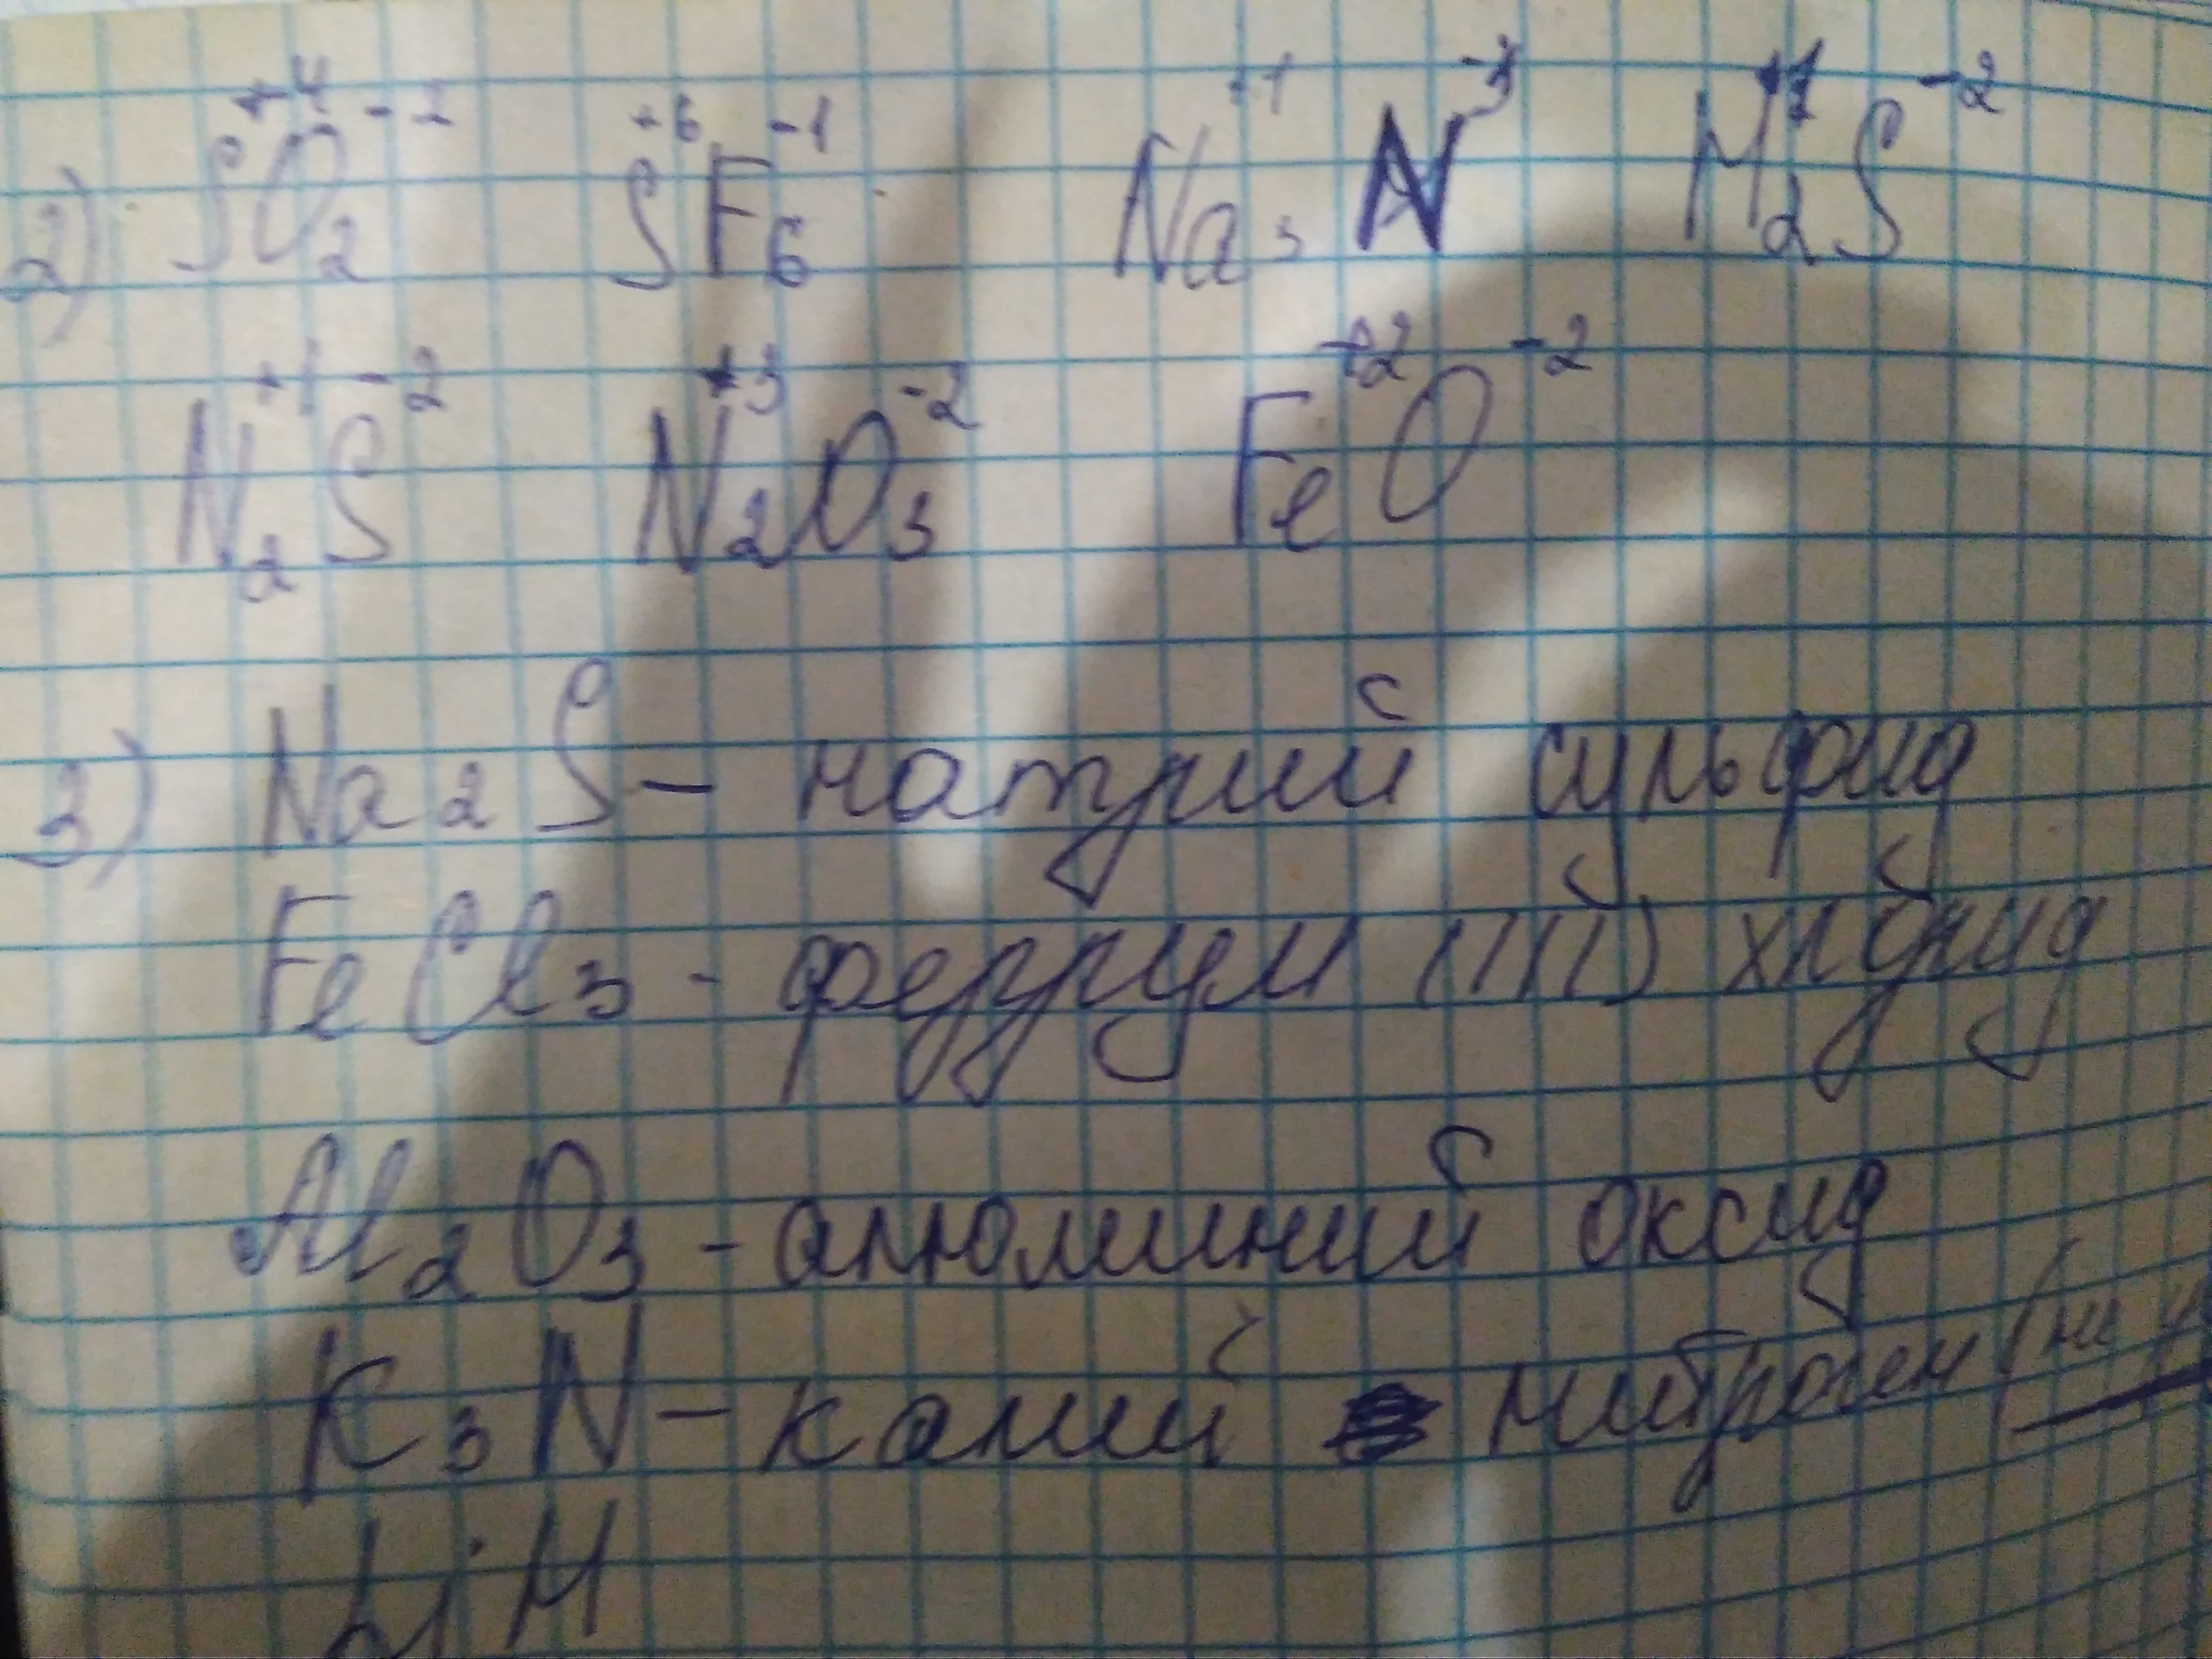 2) S⁺⁴O₂⁻² S⁺⁶F₆⁻¹ Na₃⁺¹N⁻³ H₂⁺¹S⁻²
N₂⁺¹S⁻² N₂⁺³O₃⁻² Fe⁺²O⁻²
3) Na₂S – натрий сульфид
FeCl₃ - феррум (III) хлорид
Al₂O₃ - алюминий оксид
K₃N – калий нитроген (не
LiH